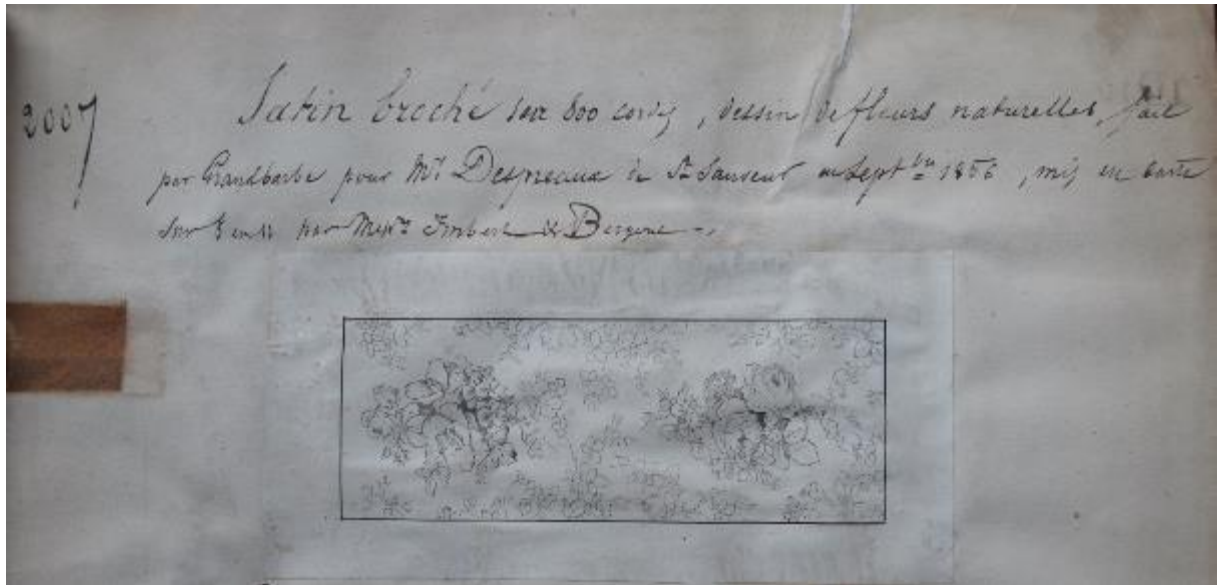 2007
Satin broché sur 800 cordes, dessin de fleurs naturelles, fait
par Grandbarbe pour Mr Despreaux de St Sauveur en Septbre 1856, mis en carte
sur 8 en 11 par Messrs Imbert & Bergeret